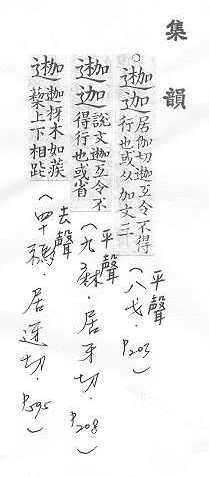 集韻
○ 迦 居伽切 互令不得
行也或从加文二
平聲
(八戈.P203)
迦 說文 互令不
得行也或省
平聲
(九麻.居牙切.P208)
迦 枒木如蒺
藜上下相距
去聲
(四十禡.居迓切.P595)